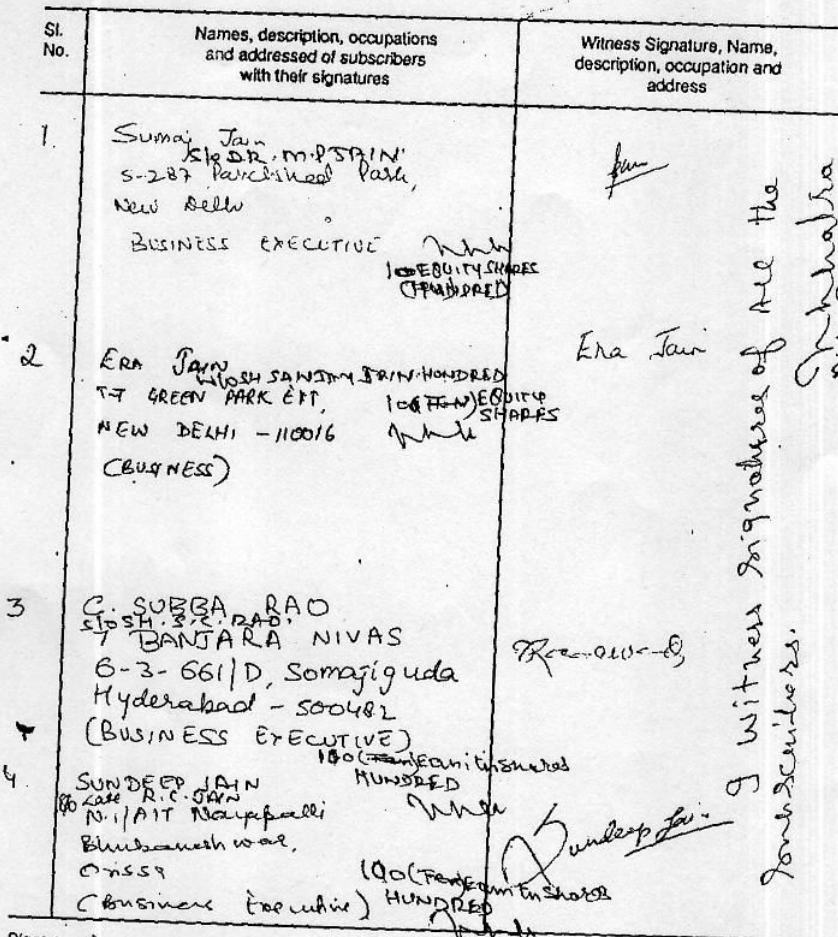 Sl.
No.
Names, description, occupations
and addressed of subscribers
with their signatures
Witness Signature, Name,
description, occupation and
address
1.
Jain
S/o DR. M.P JAIN
S-287 Panchsheel Park,
New Delhi
BUSINESS EXECUTIVE
100 EQUITY SHARES
(HUNDRED)
2
ERA JAIN
W/O SH SANJAY JAIN HONDRED
T-7 GREEN PARK EXT,
100 (TEN) EQUITY
SHARES
NEW DELHI - 110016
(BUSINESS)
Era Jain
3
C. SUBBA RAO
S/o SH. S.C. RAO.
7 BANJARA NIVAS
6-3-661/D, Somajiguda
Hyderabad - 500482
(BUSINESS EXECUTIVE)
100 (Ten) Equity shares
HUNDRED
4
SUNDEEP JAIN
S/o Late R.C. JAIN
N.1/A17 Nayapalli
Bhubaneshwar,
Orissa
(Business Executive)
100 (Ten) Equity shares
HUNDRED
Sundeep Jain
I witness signatures of all the
Subscribers.